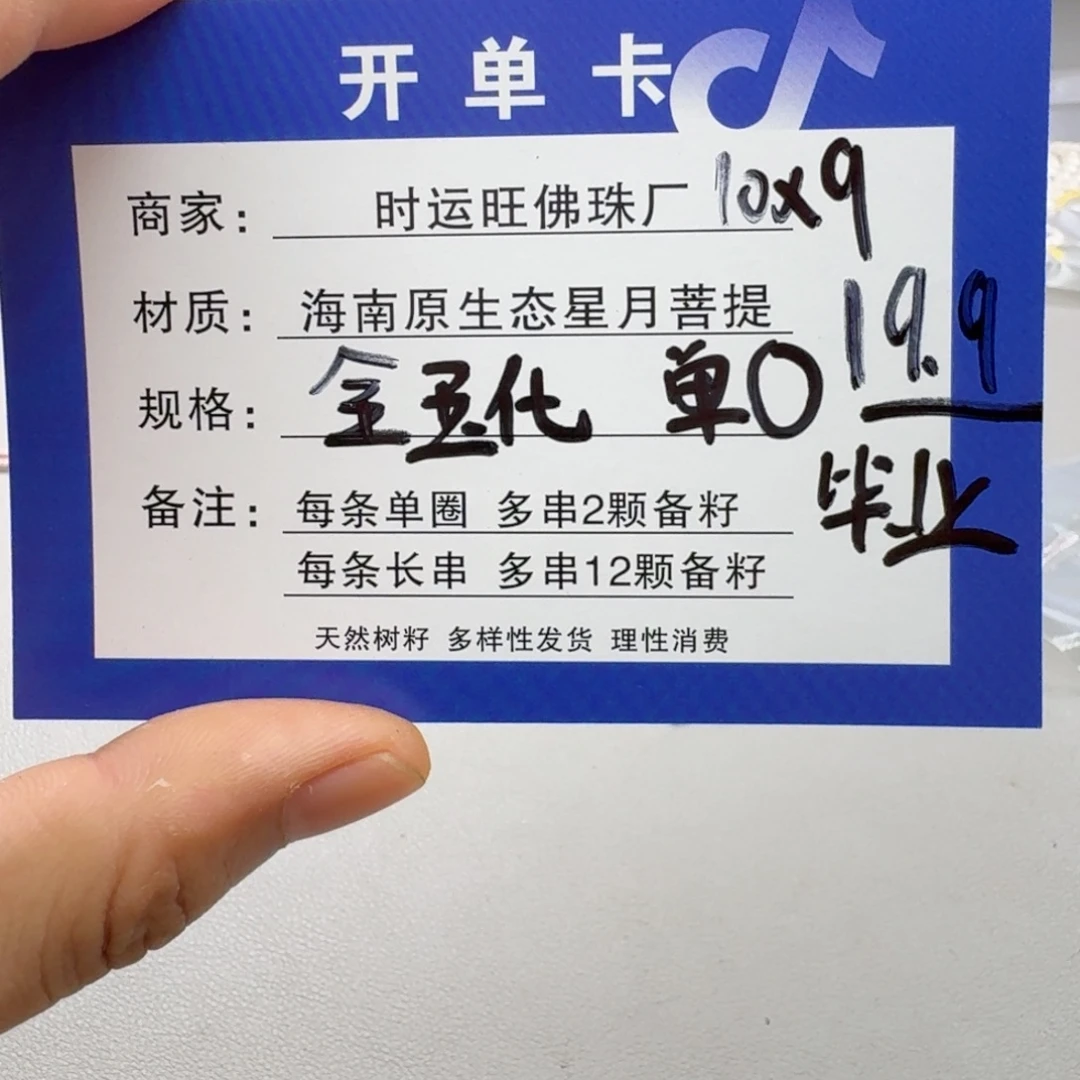 开单卡
商家： 时运旺佛珠厂 10x9
材质： 海南原生态星月菩提 19.9
规格： 全玉化 单O
毕业
备注： 每条单圈 多串2颗备籽
每条长串 多串12颗备籽
天然树籽 多样性发货 理性消费